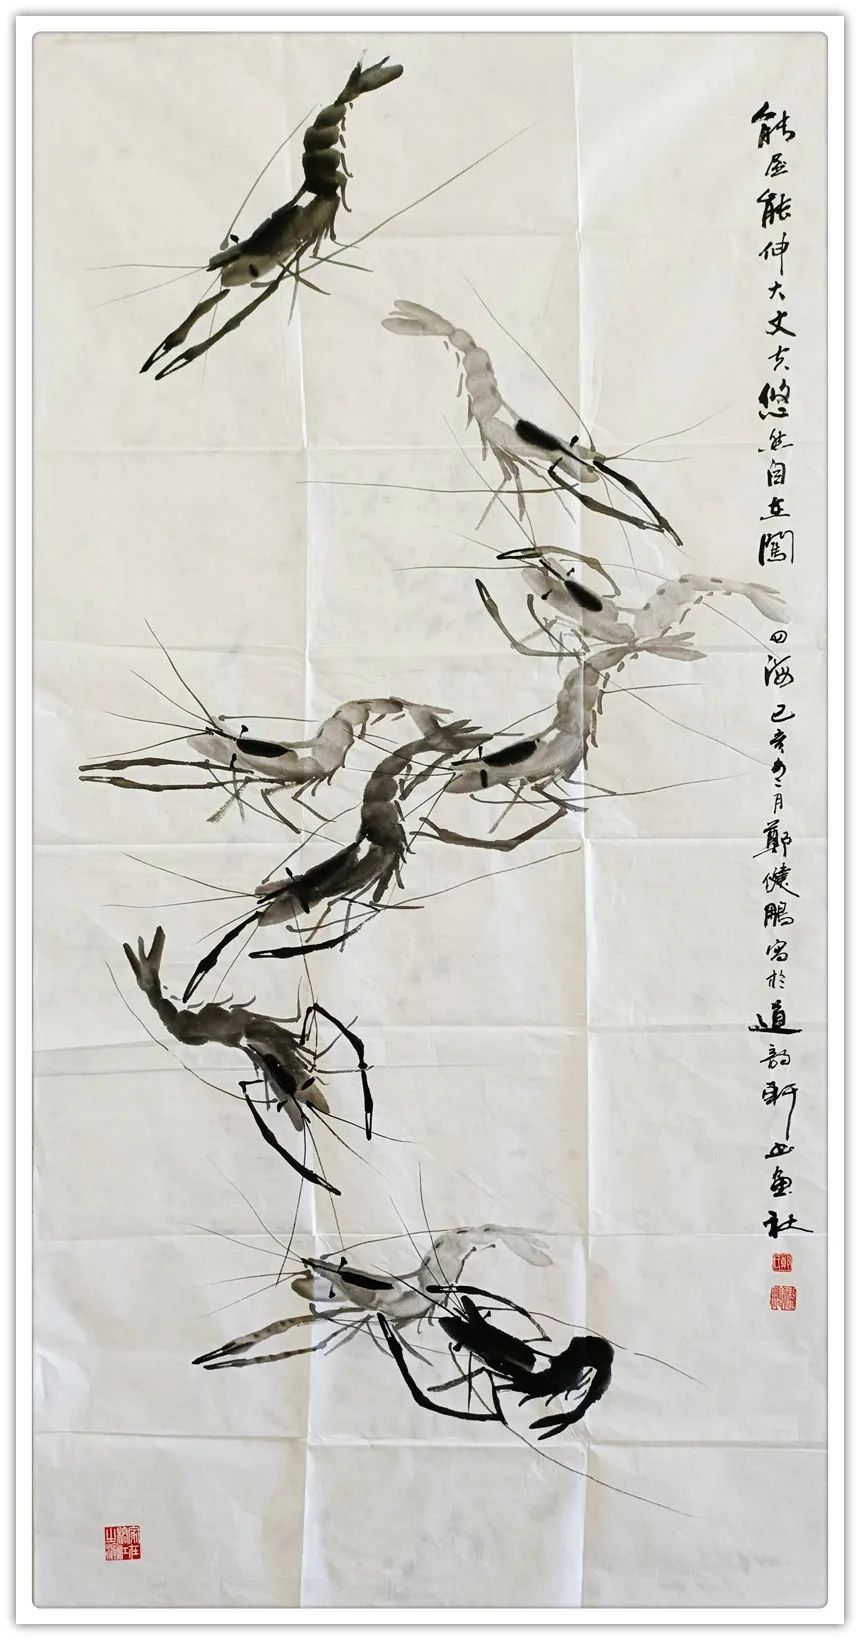 能屈能伸大丈夫悠然自在闖四海己亥冬月鄭健鵬寫於道韵軒書畫社